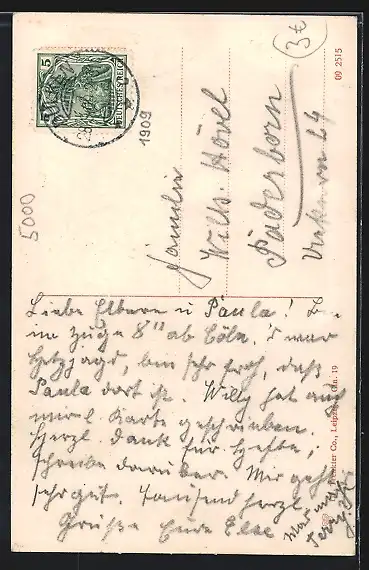 5
DEUTSCHES REICH
1909
3€
09 2515
5000
Familie
Wilh. Hövel
Paderborn
Liebe Eltern u Paula! Bin
im Zuge 8" ab Cöln. T war
Hetzjagd, bin sehr froh, daß
Paula dort ist. Willy hat auch
mir l. Karte geschrieben
Herzl. Dank für Hefte,
schreibe darüber. Mir geht
sehr gut. Tausend herzl.
Grüße Eure Else
Co., Leipzig 19